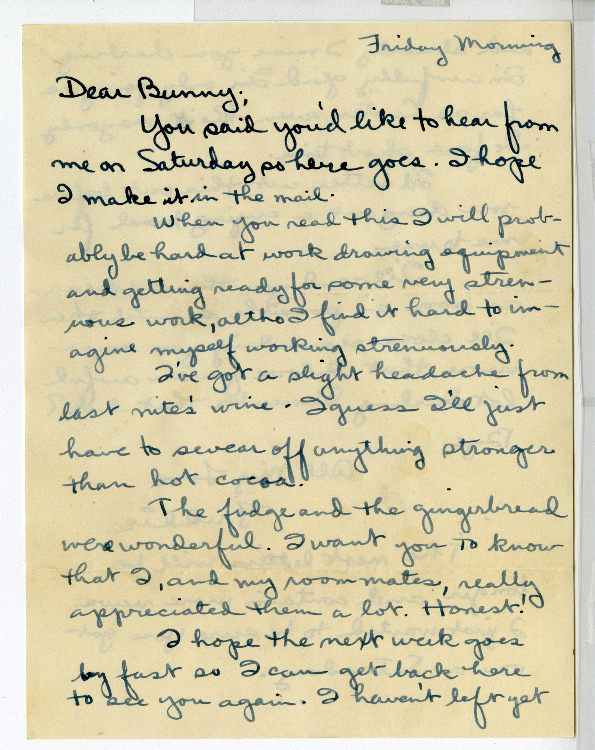 Friday Morning
Dear Bunny;
You said you'd like to hear from
me on Saturday so here goes. I hope
I make it in the mail.
When you read this I will prob-
ably be hard at work drawing equipment
and getting ready for some very stren-
uous work, altho I find it hard to im-
agine myself working strenuously.
I've got a slight headache from
last nite's wine. I guess I'll just
have to swear off anything stronger
than hot cocoa.
The fudge and the gingerbread
were wonderful. I want you to know
that I, and my roommates, really
appreciated them a lot. Honest!
I hope the next week goes
by fast so I can get back here
to see you again. I haven't left yet